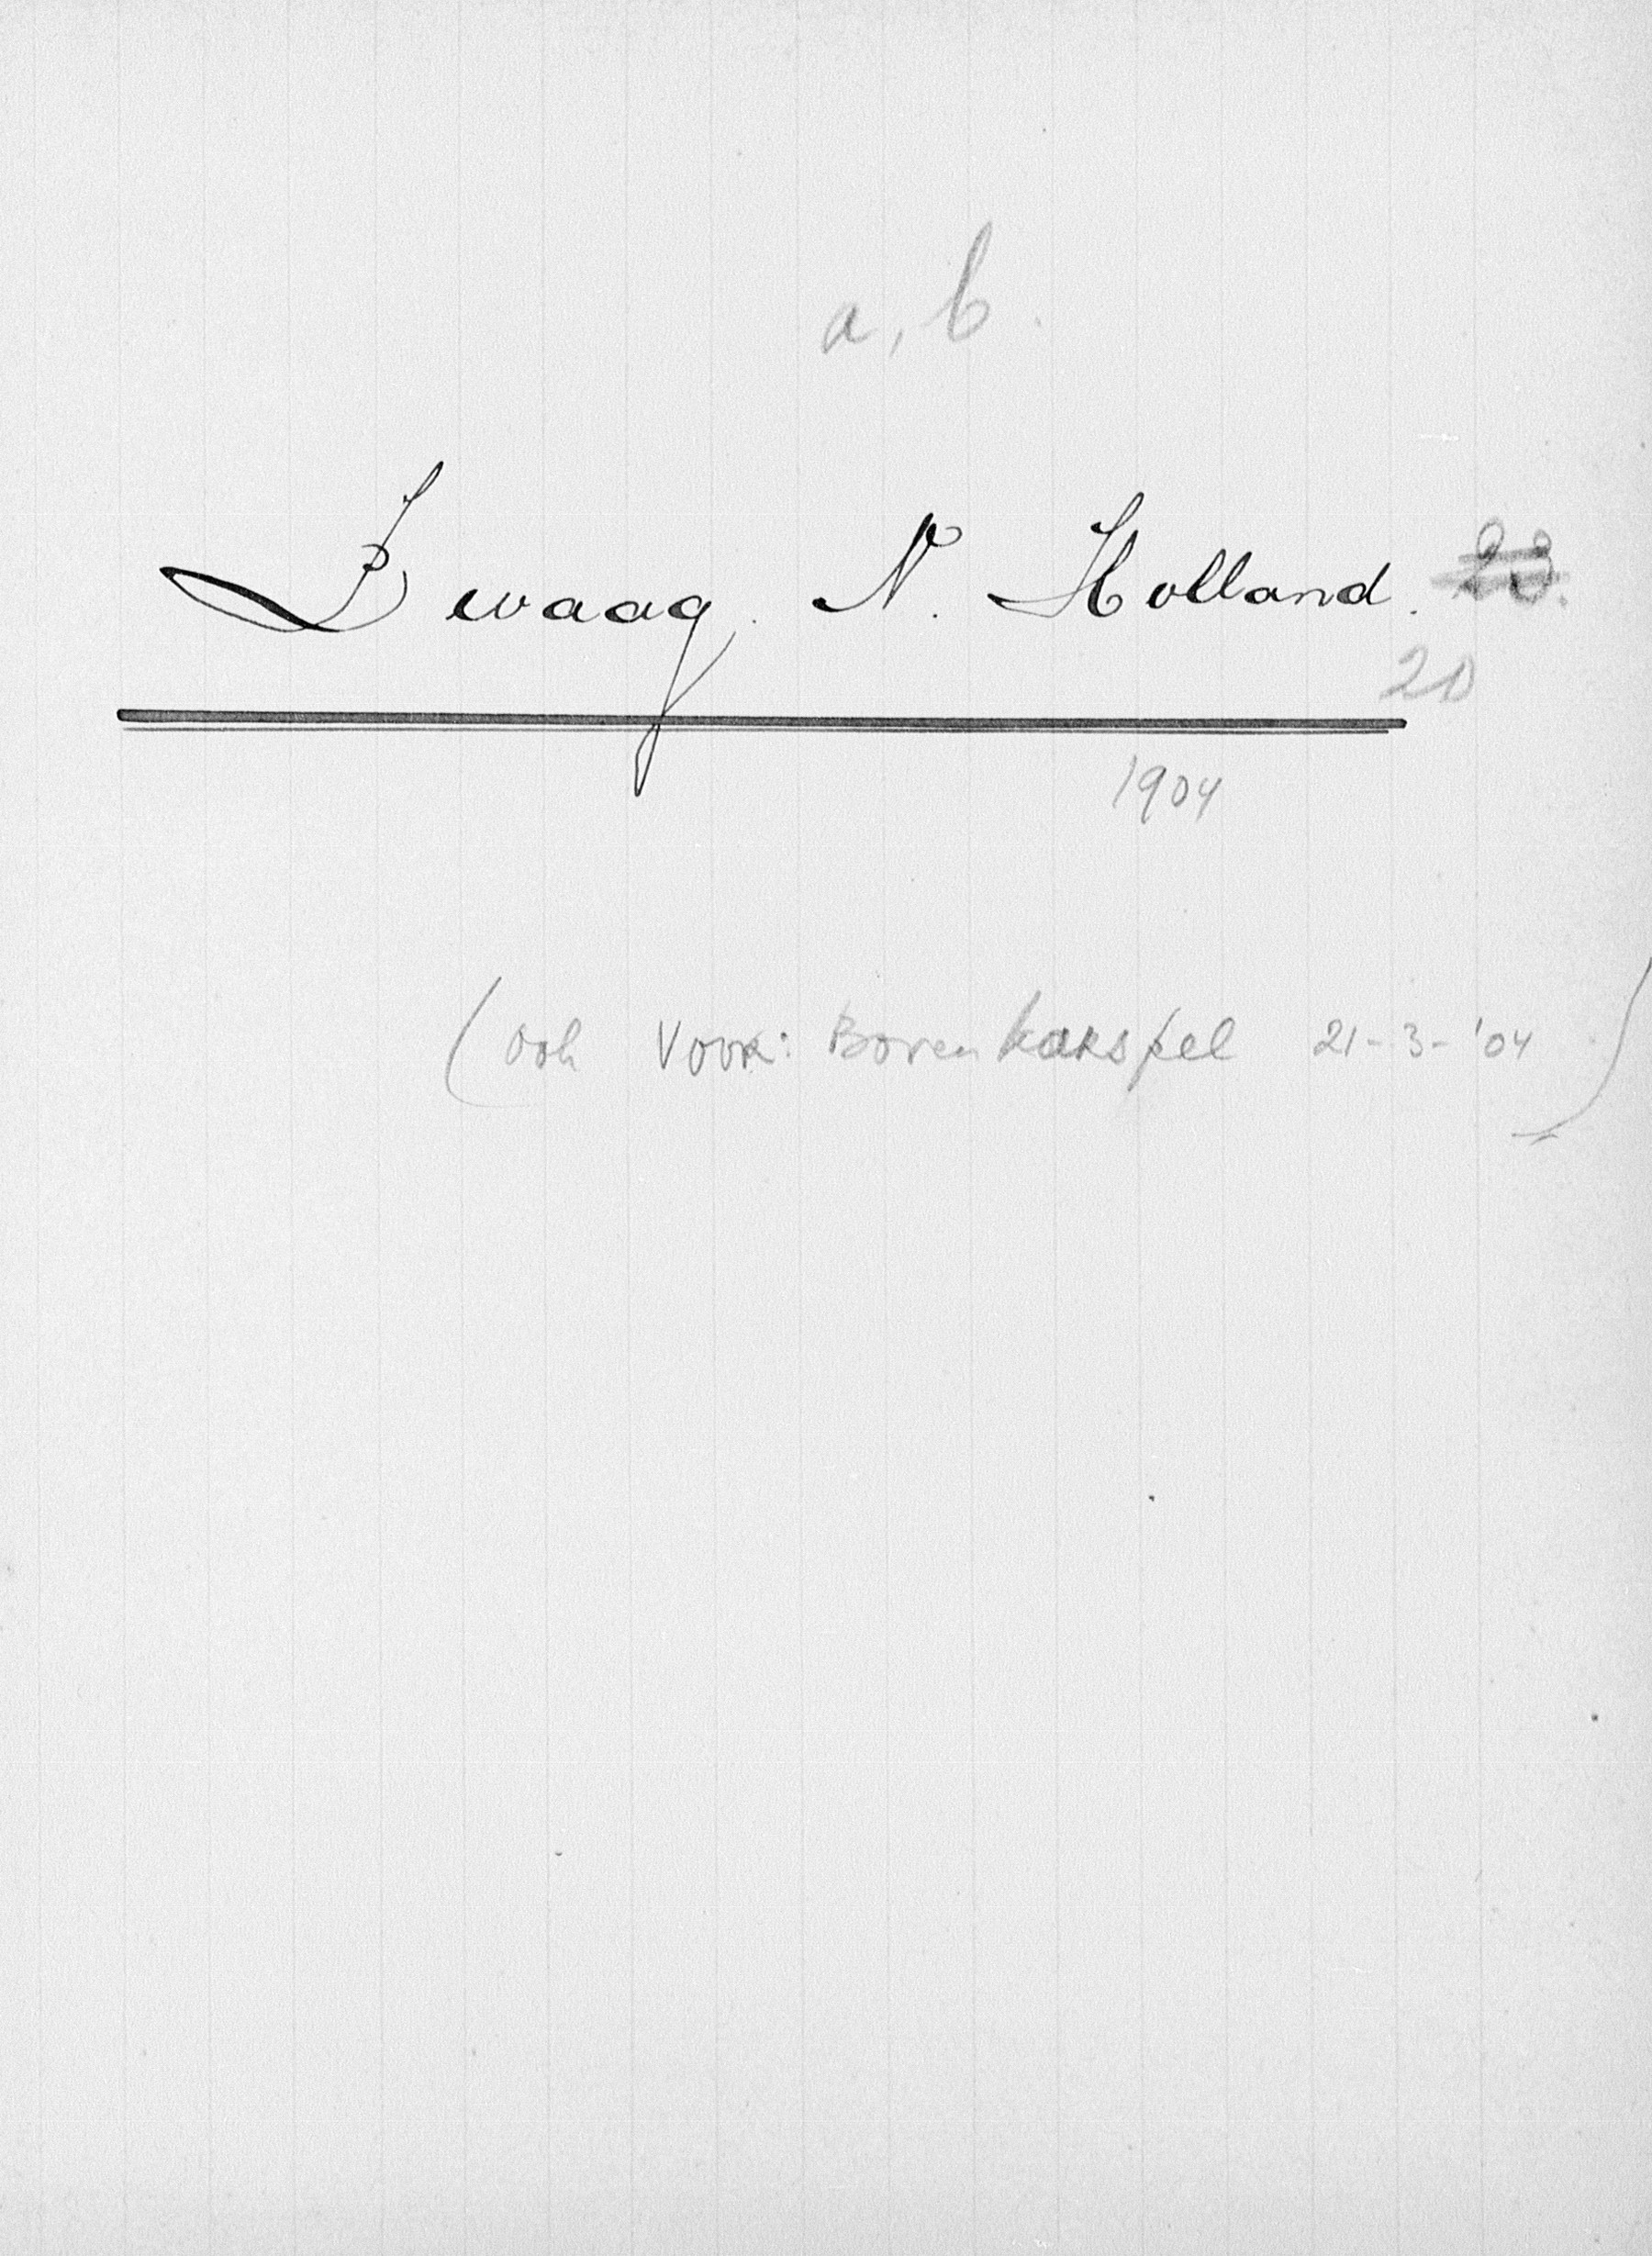 a, b.
Zwaag. N. Holland. 23.
20
1904
(Ook voor: Bovenkarspel 21-3-'04)